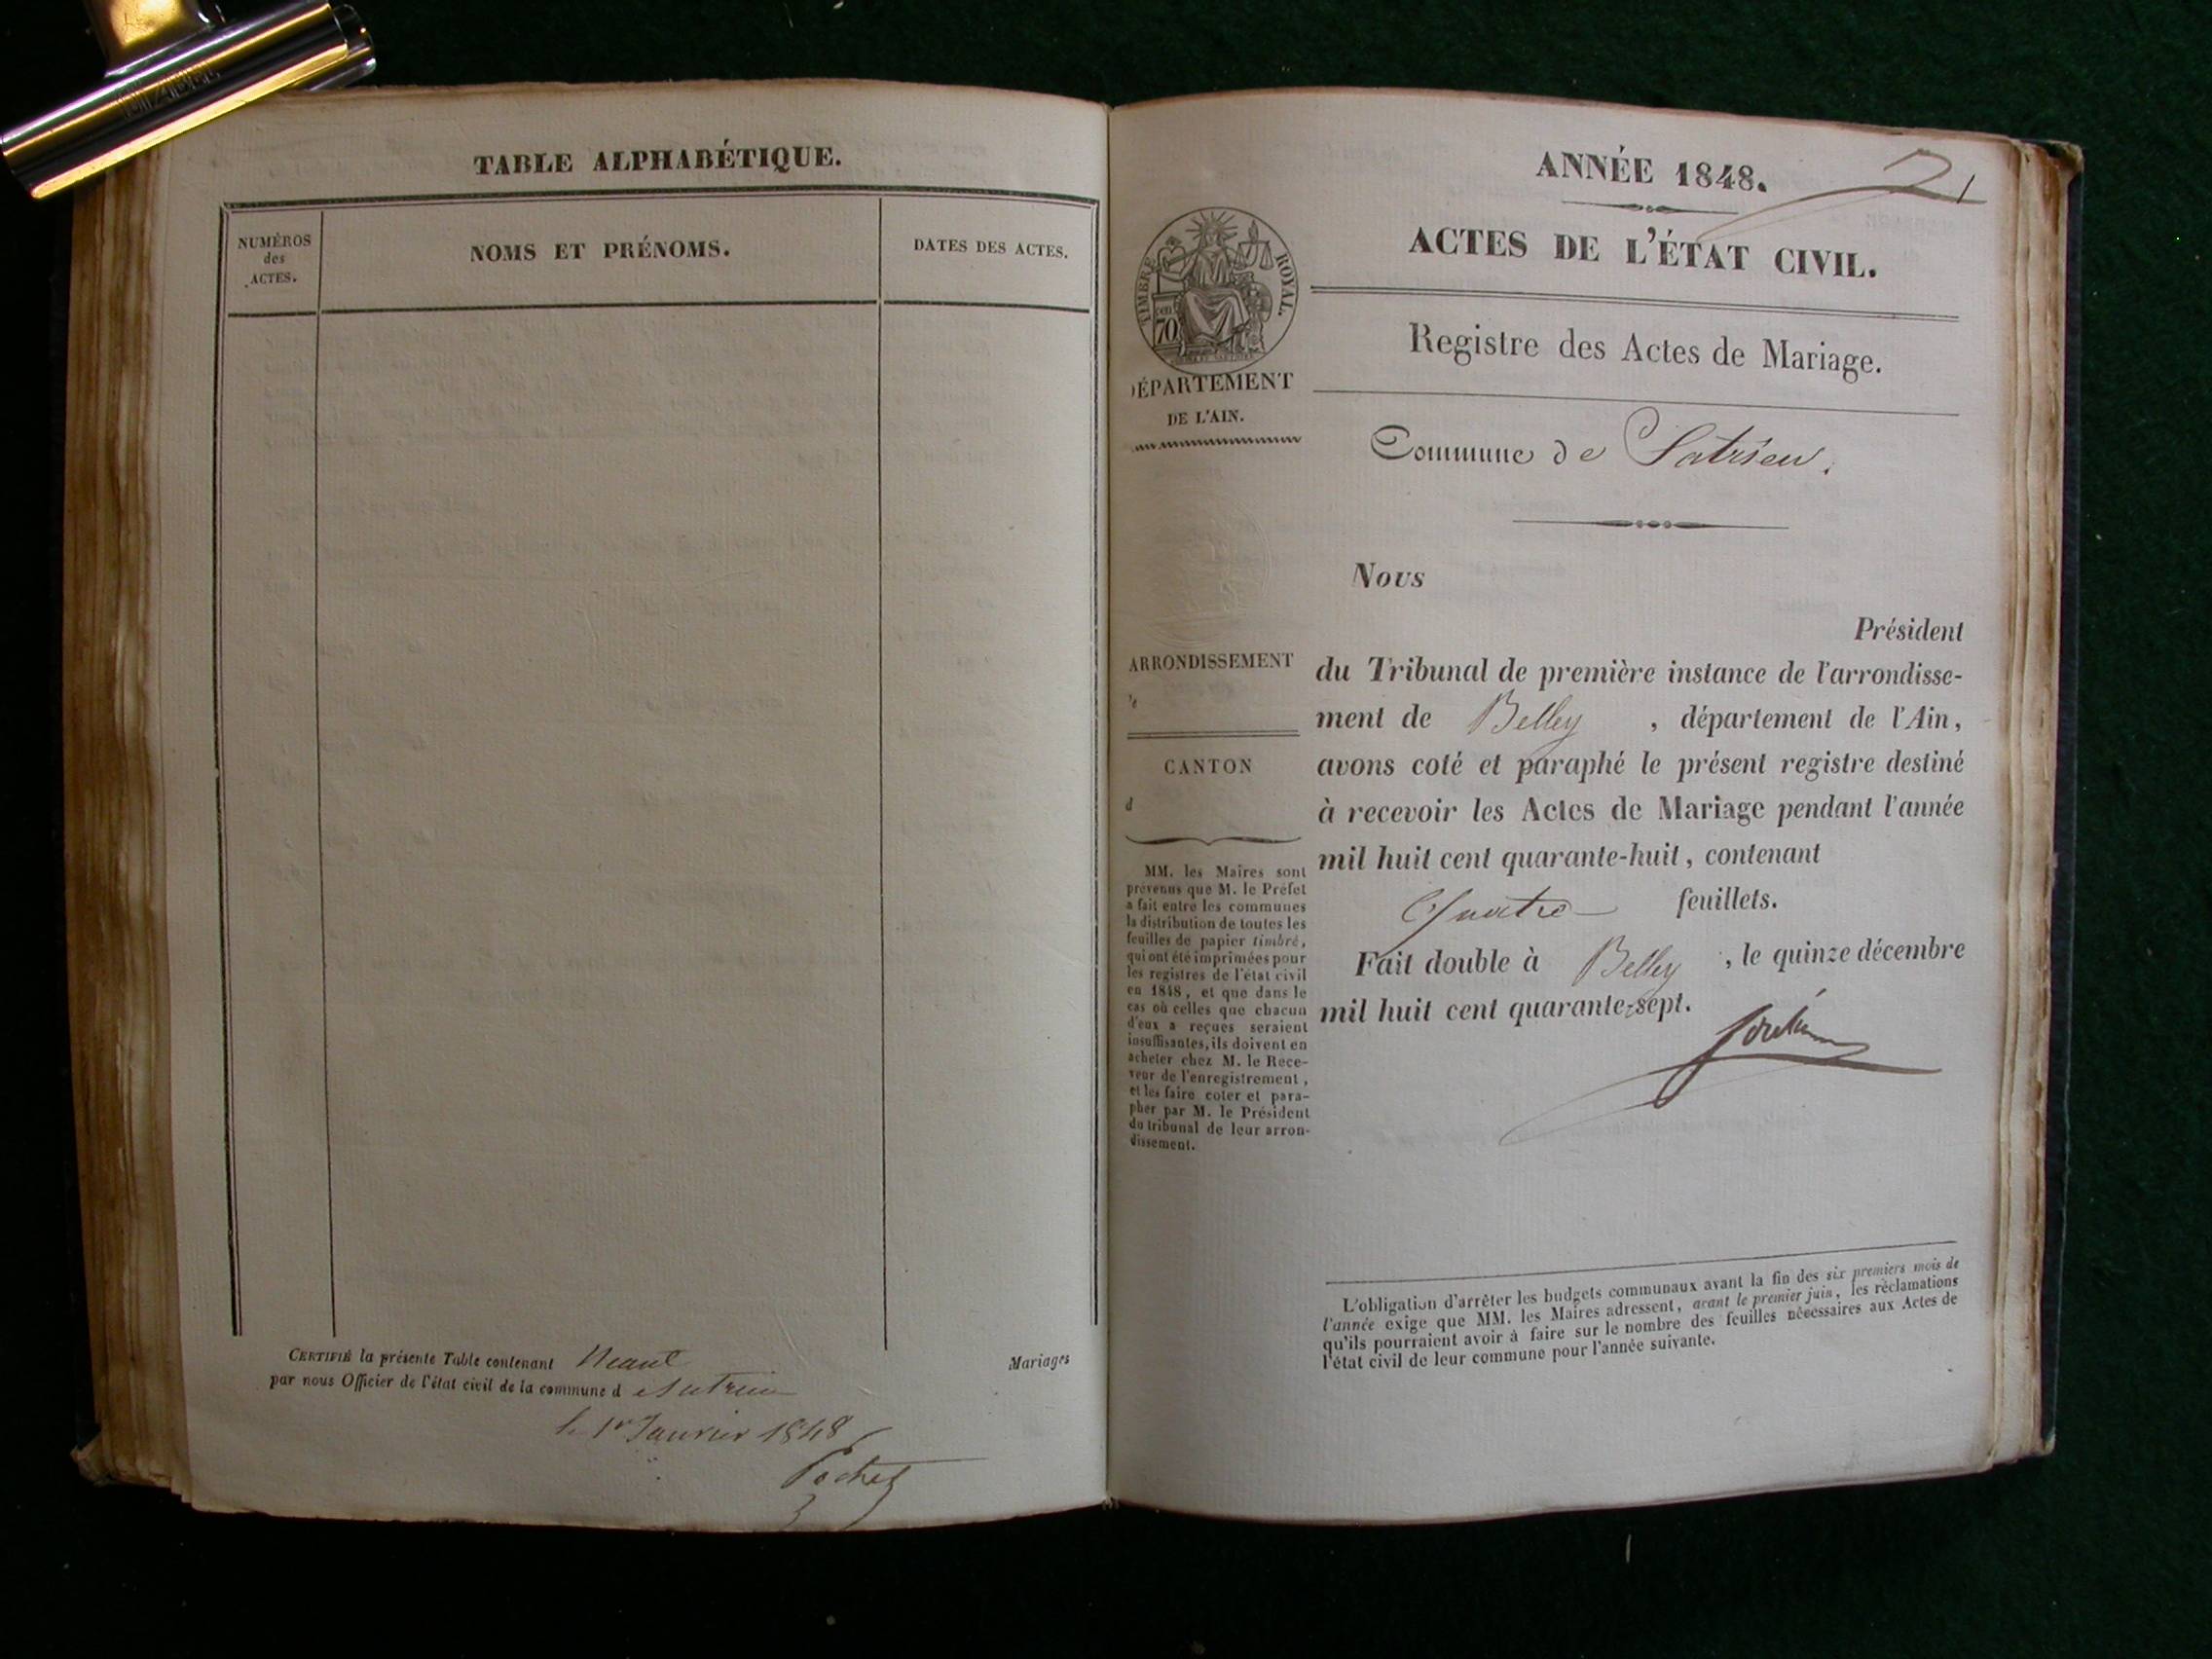 TABLE ALPHABÉTIQUE.
NUMÉROS
des
ACTES.
NOMS ET PRÉNOMS.
DATES DES ACTES.
CERTIFIÉ la présente Table contenant Neant Mariages
par nous Officier de l'état civil de la commune d e Sutrieu
le 1er Janvier 1848
Pochet
ANNÉE 1848.
ACTES DE L'ÉTAT CIVIL.
TIMBRE ROYAL.
70
DÉPARTEMENT
DE L'AIN.
Registre des Actes de Mariage.
Commune de Sutrieu.
Nous
Président
du Tribunal de première instance de l'arrondisse-
ment de Belley, département de l'Ain,
avons coté et paraphé le présent registre destiné
à recevoir les Actes de Mariage pendant l'année
mil huit cent quarante-huit, contenant
Quatre feuillets.
Fait double à Belley, le quinze décembre
mil huit cent quarante-sept.
ARRONDISSEMENT
CANTON
d
MM. les Maires sont
prévenus que M. le Préfet
a fait entre les communes
la distribution de toutes les
feuilles de papier timbré,
qui ont été imprimées pour
les registres de l'état civil
en 1848, et que dans le
cas où celles que chacun
d'eux a reçues seraient
insuffisantes, ils doivent en
acheter chez M. le Rece-
veur de l'enregistrement,
et les faire coter et para-
pher par M. le Président
du tribunal de leur arron-
dissement.
L'obligation d'arrêter les budgets communaux avant la fin des six premiers mois de
l'année exige que MM. les Maires adressent, avant le premier juin, les réclamations
qu'ils pourraient avoir à faire sur le nombre des feuilles nécessaires aux Actes de
l'état civil de leur commune pour l'année suivante.